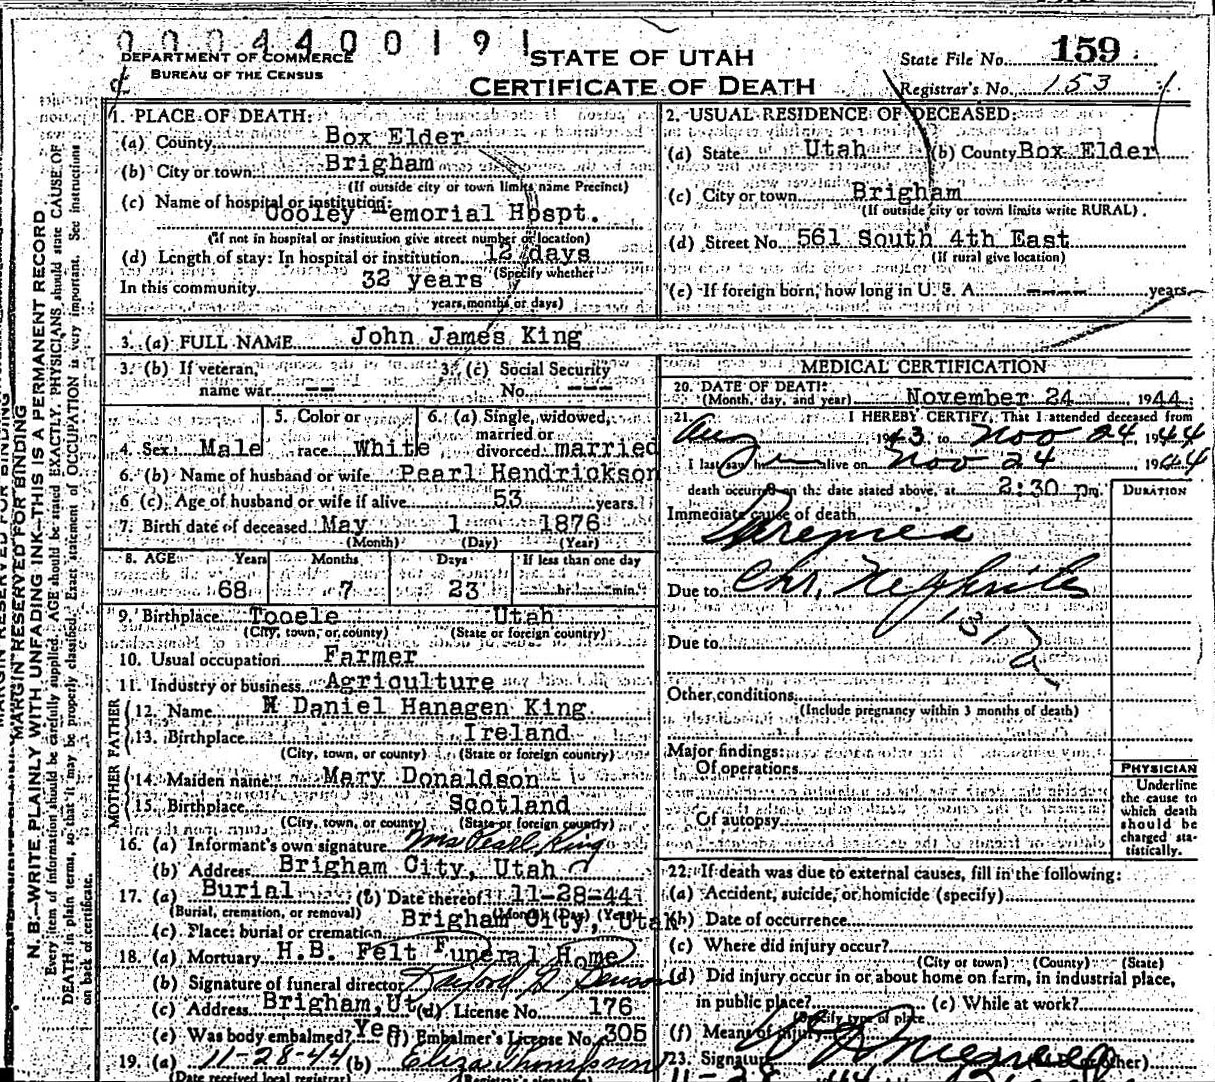 0004400191
DEPARTMENT OF COMMERCE
BUREAU OF THE CENSUS
STATE OF UTAH
CERTIFICATE OF DEATH
State File No. 159
Registrar's No. 153
1. PLACE OF DEATH:
(a) County Box Elder
(b) City or town Brigham
(If outside city or town limits name Precinct)
(c) Name of hospital or institution:
Cooley Memorial Hospt.
(If not in hospital or institution give street number or location)
(d) Length of stay: In hospital or institution 12 days
(Specify whether
In this community 32 years
years, months or days)
2. USUAL RESIDENCE OF DECEASED:
(a) State Utah (b) County Box Elder
(c) City or town Brigham
(If outside city or town limits write RURAL)
(d) Street No. 561 South 4th East
(If rural give location)
(e) If foreign born, how long in U. S. A. ---- years
3. (a) FULL NAME John James King
3. (b) If veteran,
name war --
3. (c) Social Security
No. ---
4. Sex Male
5. Color or
race White
6. (a) Single, widowed,
married or
divorced married
6. (b) Name of husband or wife Pearl Hendrickson
6 (c). Age of husband or wife if alive 53 years.
7. Birth date of deceased May 1 1876
(Month) (Day) (Year)
8. AGE Years Months Days If less than one day
68 7 23 hr. min.
9. Birthplace Tooele Utah
(City, town, or county) (State or foreign country)
10. Usual occupation Farmer
11. Industry or business Agriculture
FATHER
12. Name Daniel Hanagen King.
13. Birthplace Ireland
(City, town, or county) (State or foreign country)
MOTHER
14. Maiden name Mary Donaldson
15. Birthplace Scotland
(City, town, or county) (State or foreign country)
16. (a) Informant's own signature Mrs Pearl King
(b) Address Brigham City, Utah
17. (a) Burial (b) Date thereof 11-28-44
(Burial, cremation, or removal) (Month) (Day) (Year)
(c) Place: burial or cremation Brigham City, Utah
18. (a) Mortuary H.B. Felt Funeral Home
(b) Signature of funeral director
(c) Address Brigham, Ut (d) License No. 176
(e) Was body embalmed? Yes (f) Embalmer's License No. 305
19. (a) 11-28-44 (b) Eliza Thompson
(Date received local registrar) (Registrar's signature)
MEDICAL CERTIFICATION
20. DATE OF DEATH:
(Month, day, and year) November 24, 1944
21. I HEREBY CERTIFY, That I attended deceased from
Aug 1943, to Nov 24, 1944
I last saw h alive on Nov 24, 1944
death occurred on the date stated above, at 2:30 pm. DURATION
Immediate cause of death
Uremea
Due to Chr. Nephritis
Due to
Other conditions
(Include pregnancy within 3 months of death)
Major findings:
Of operations
Of autopsy
PHYSICIAN
Underline
the cause to
which death
should be
charged sta-
tistically.
22. If death was due to external causes, fill in the following:
(a) Accident, suicide, or homicide (specify)
(b) Date of occurrence
(c) Where did injury occur?
(City or town) (County) (State)
(d) Did injury occur in or about home on farm, in industrial place,
in public place? (e) While at work?
(Specify type of place
(f) Means of injury
23. Signature
11-28
MARGIN RESERVED FOR BINDING
N. B.—WRITE PLAINLY WITH UNFADING INK—THIS IS A PERMANENT RECORD
Every item of information should be carefully supplied. AGE should be stated EXACTLY. PHYSICIANS should state CAUSE OF
DEATH in plain terms, so that it may be properly classified. Exact statement of OCCUPATION is very important. See instructions
on back of certificate.